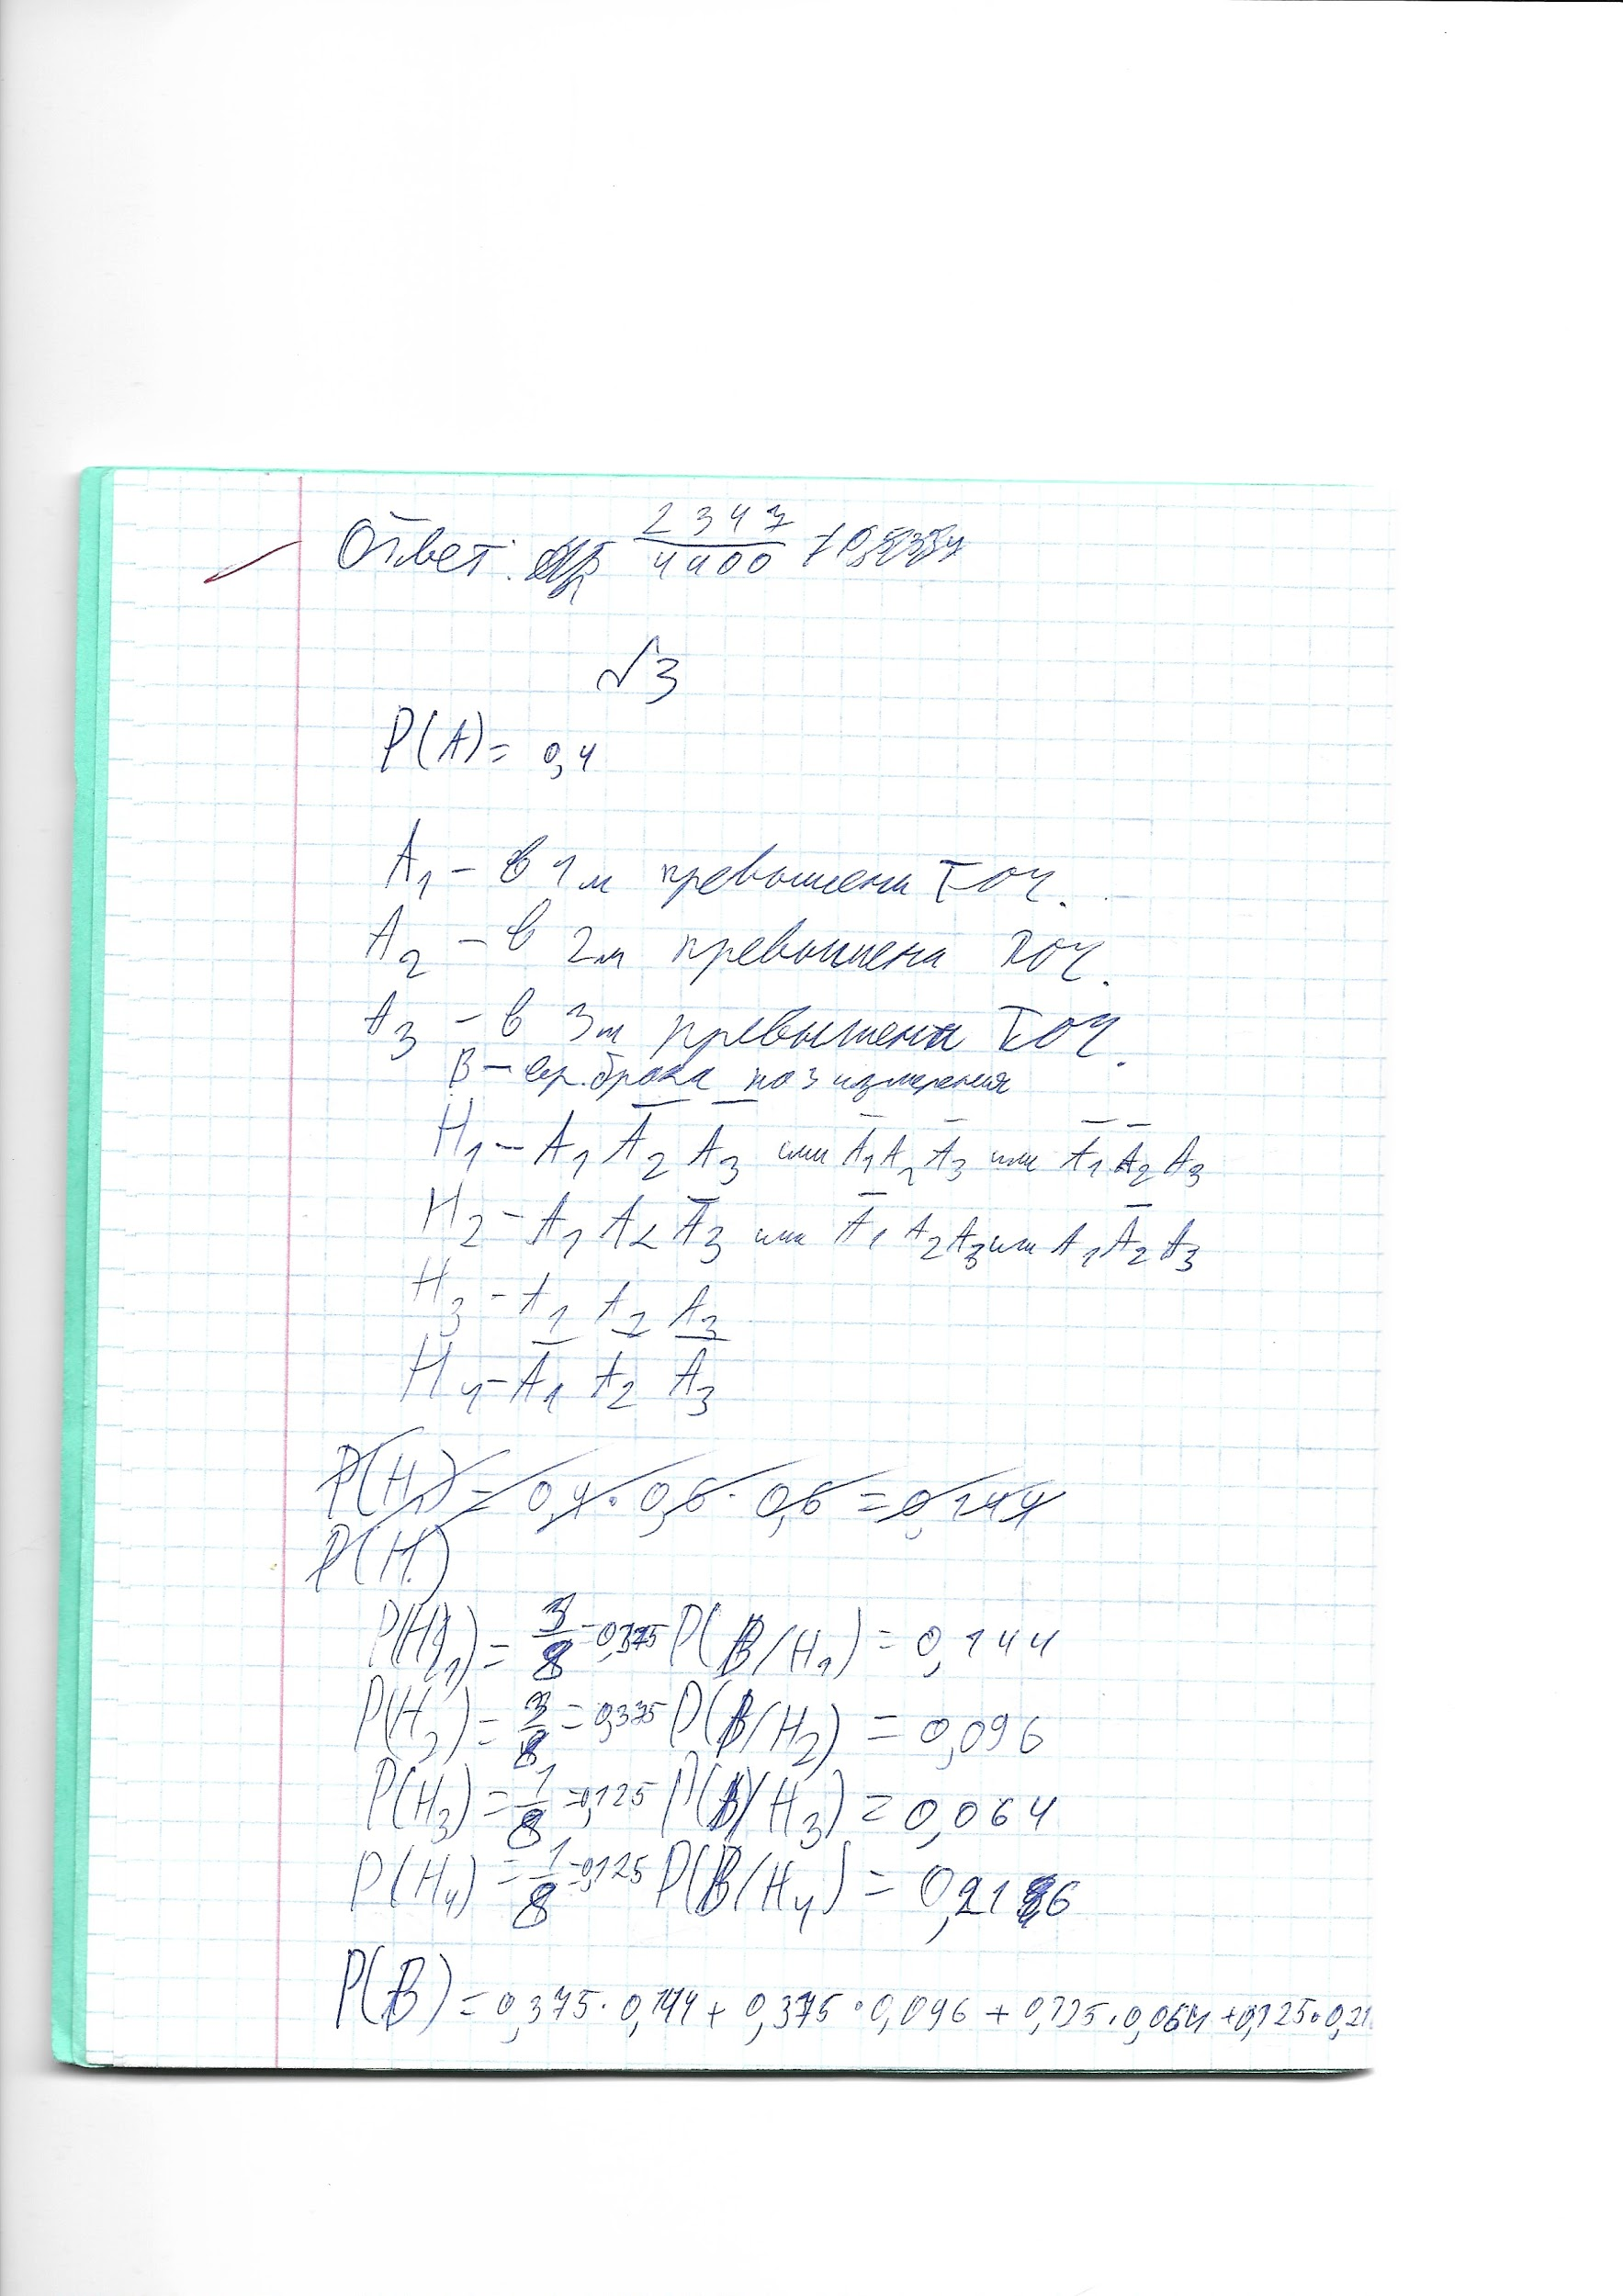 Ответ: 2343/4400
√3
P(A) = 0,4
A₁ – в 1м превышена точ.
A₂ – в 2м превышена точ.
A₃ – в 3м превышена точ.
B – вер. брака по 3 измерения
H₁ – A₁ A̅₂ A̅₃ или A̅₁ A₂ A̅₃ или A̅₁ A̅₂ A₃
H₂ – A₁ A₂ A̅₃ или A̅₁ A₂ A₃ или A₁ A̅₂ A₃
H₃ – A₁ A₂ A₃
H₄ – A̅₁ A̅₂ A̅₃
P(H₁) = 0,4 · 0,6 · 0,6 = 0,144
P(H)
P(H₁) = 3/8 = 0,375 P(B/H₁) = 0,144
P(H₂) = 3/8 = 0,375 P(B/H₂) = 0,096
P(H₃) = 1/8 = 0,125 P(B/H₃) = 0,064
P(H₄) = 1/8 = 0,125 P(B/H₄) = 0,216
P(B) = 0,375 · 0,144 + 0,375 · 0,096 + 0,125 · 0,064 + 0,125 · 0,21